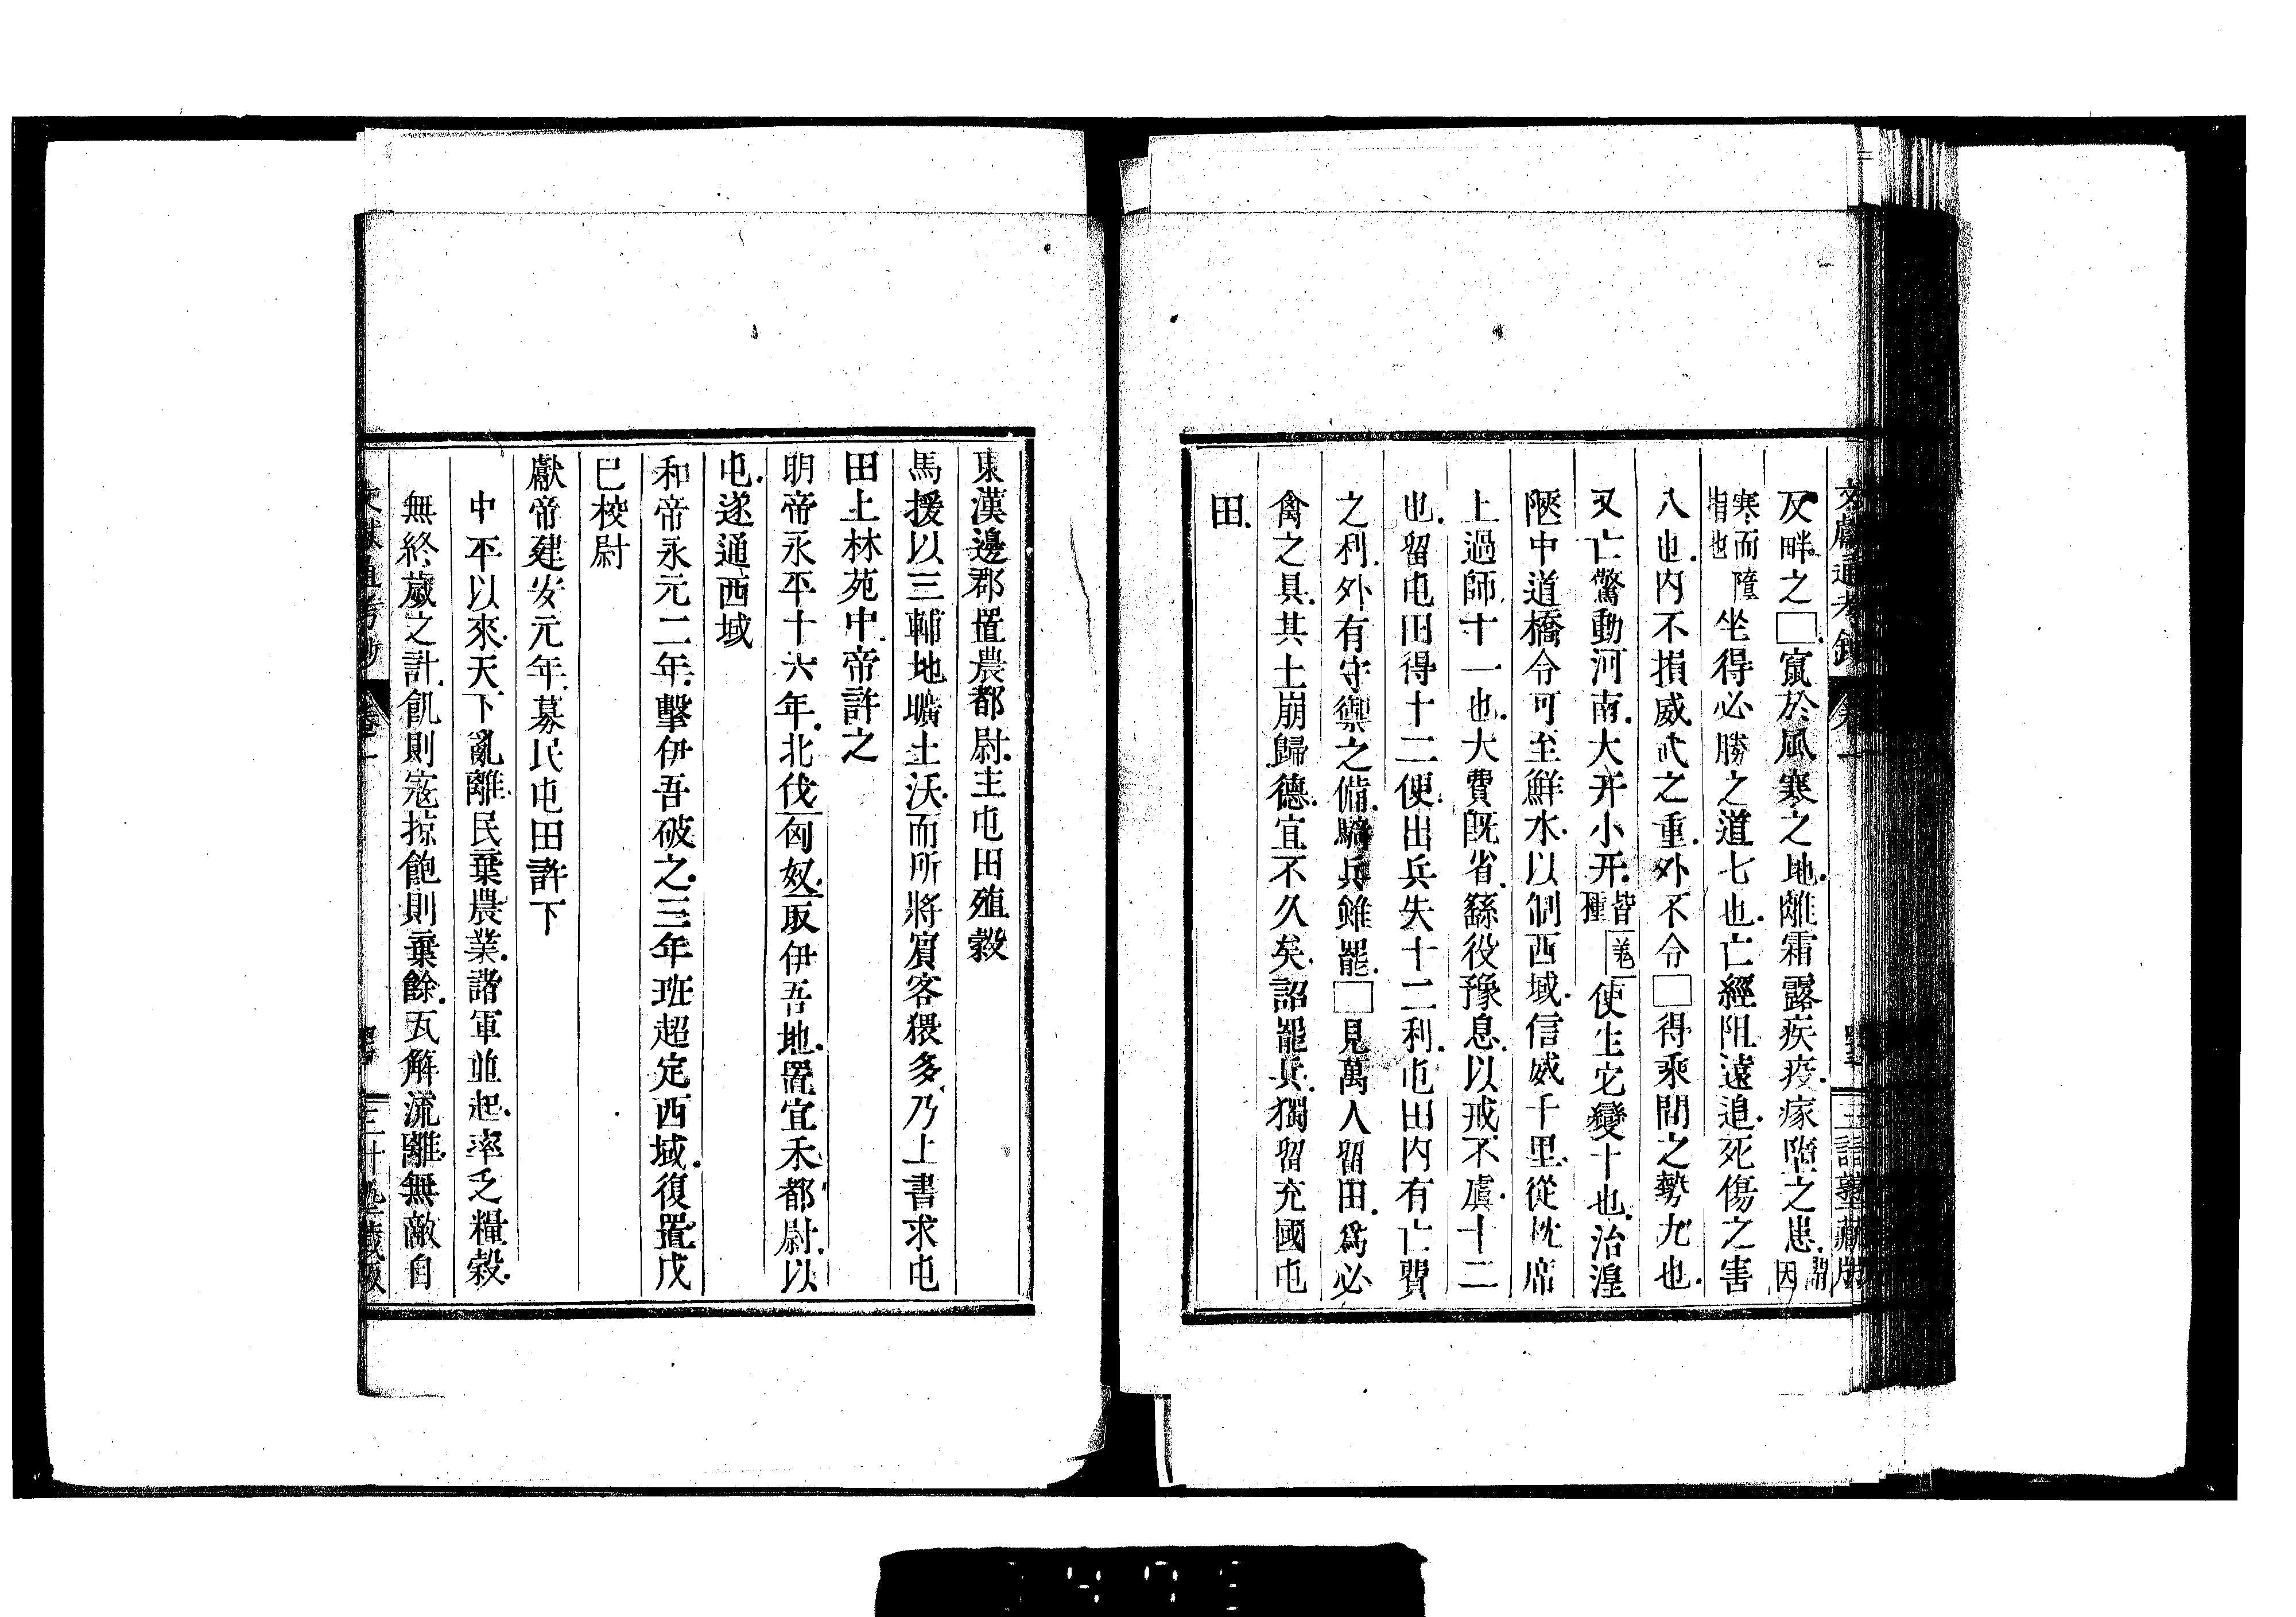 文獻通考鈔 卷一 三詰藝藏版
反畔之□竄於風寒之地離霜露疾疫瘃墮之患謂因
寒而墮指也坐得必勝之道七也亡經阻遠追死傷之害
八也內不損威武之重外不令□得乘間之勢九也
又亡驚動河南大幵小幵皆羌種使生它變十也治湟
陿中道橋令可至鮮水以制西域信威千里從枕席
上過師十一也大費旣省繇役豫息以戒不虞十二
也留屯田得十二便出兵失十二利屯田內有亡費
之利外有守禦之備騎兵雖罷□見萬人留田爲必
禽之具其土崩歸德宜不久矣詔罷兵獨留充國屯
田
東漢邊郡置農都尉主屯田殖穀
馬援以三輔地壙土沃而所將賓客猥多乃上書求屯
田上林苑中帝許之
明帝永平十六年北伐匈奴取伊吾地置宜禾都尉以
屯遂通西域
和帝永元二年擊伊吾破之三年班超定西域復置戊
巳校尉
獻帝建安元年募民屯田許下
中平以來天下亂離民棄農業諸軍並起率乏糧穀
無終歲之計飢則寇掠飽則棄餘瓦解流離無敵自